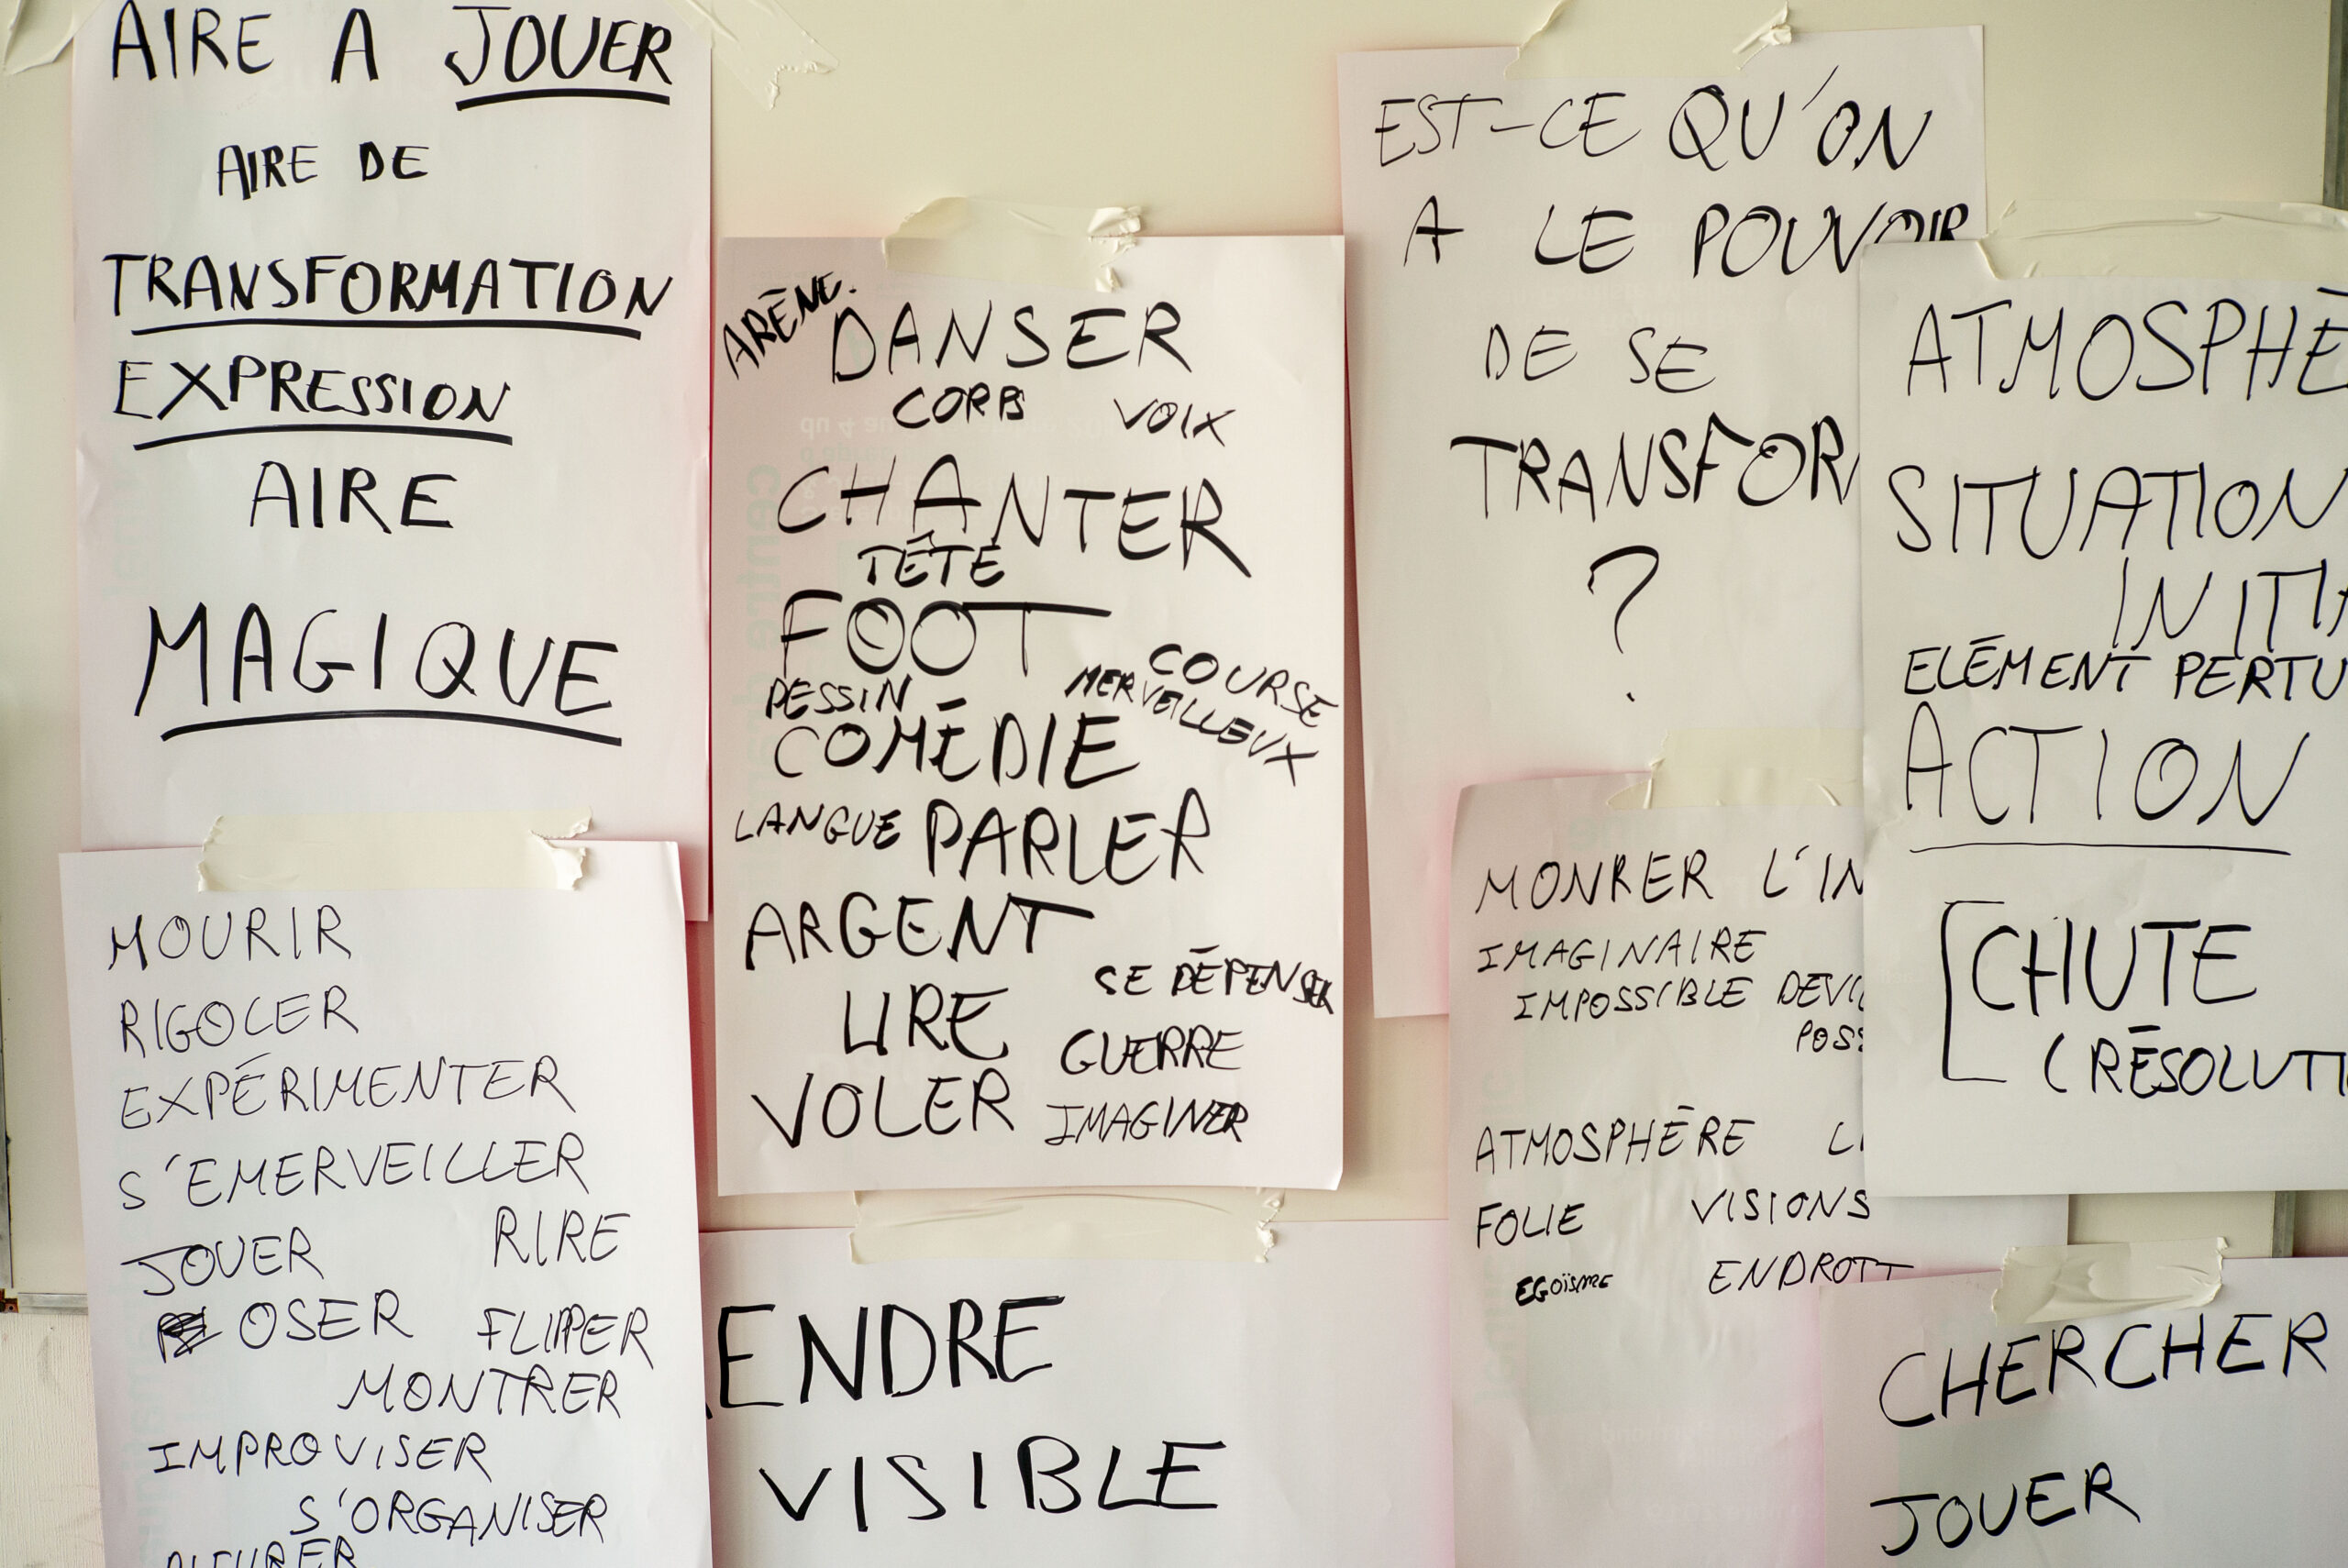 AIRE A JOUER
AIRE DE
TRANSFORMATION
EXPRESSION
AIRE
MAGIQUE
MOURIR
RIGOLER
EXPÉRIMENTER
S'EMERVEILLER
JOUER RIRE
OSER FLIPPER
MONTRER
IMPROVISER
S'ORGANISER
ARÈNE.
DANSER
CORPS VOIX
CHANTER
TÊTE
FOOT
COURSE
DESSIN MERVEILLEUX
COMÉDIE
LANGUE PARLER
ARGENT
SE DÉPENSER
LIRE
GUERRE
VOLER IMAGINER
ENDRE
VISIBLE
EST-CE QU'ON
A LE POUVOIR
DE SE
TRANSFOR
?
MONRER L'IN
IMAGINAIRE
IMPOSSIBLE DEVI
POSS
ATMOSPHÈRE L
FOLIE VISIONS
EGOÏSME ENDROIT
ATMOSPHÈ
SITUATION
INITIA
ELÉMENT PERTU
ACTION
[CHUTE
(RÉSOLUTI
CHERCHER
JOUER